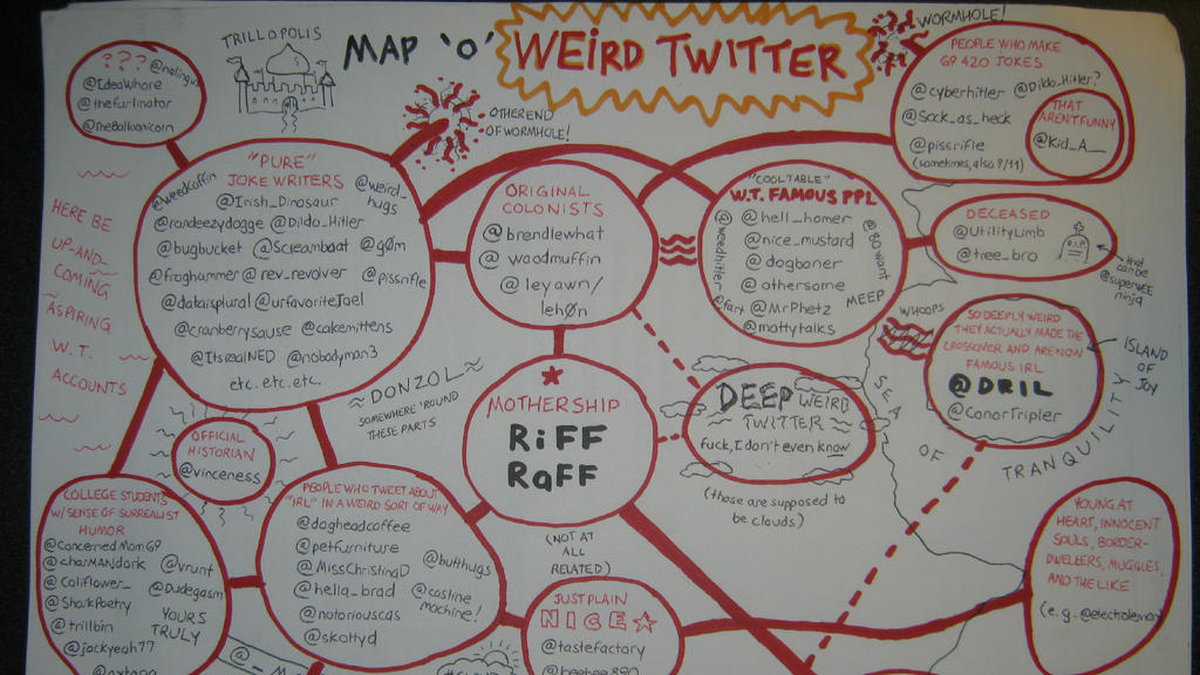 MAP 'O' WEIRD TWITTER
TRILLOPOLIS
WORMHOLE!
OTHER END
OF WORMHOLE!
???
@IdeaWhore
@thefurlinator
@TheBalloonicorn
PEOPLE WHO MAKE
GP 420 JOKES
@cyberhitler @Dildo_Hitler?
@Sock_as_heck
@pissrifle
(sometimes, also 9/11)
THAT
AREN'T FUNNY
@Kid_A__
"PURE"
JOKE WRITERS
@weedcoffin
@weird_
hugs
@Irish_Dinosaur
@randeezydogge @Dildo_Hitler
@bugbucket @Screamboat @g0m
@froghammer @rev_revolver @pissrifle
@dakaisplural @urfavoriteJoel
@cranberrysause @cakemittens
@ItsrealNED @nobodyman3
etc. etc. etc
HERE BE
UP-AND-
COMING
ASPIRING
W.T.
ACCOUNTS
ORIGINAL
COLONISTS
@brendlewhat
@woodmuffin
@leyawn/
leh0n
"COOL TABLE"
W.T. FAMOUS PPL
@weedhitler
@hell_homer
@nice_mustard
@dogboner
@othersome
@fart @MrPhetz
@mattytalks
@80want
MEEP
DECEASED
@UtilityLimb
@tree_bro
R.I.P.
that
can be
@superWEE
ninja
WHOOPS
SO DEEPLY WEIRD
THEY ACTUALLY MADE THE
CROSSOVER AND ARE NOW
FAMOUS IRL
@DRIL
@ConorTripler
ISLAND
OF
JOY
SEA OF TRANQUILITY
DONZOL
SOMEWHERE 'ROUND
THESE PARTS
MOTHERSHIP
RiFF
RaFF
(NOT AT
ALL
RELATED)
DEEP WEIRD
TWITTER
fuck, I don't even know
(those are supposed to
be clouds)
OFFICIAL
HISTORIAN
@vinceness
COLLEGE STUDENTS
W/ SENSE OF SURREALIST
HUMOR
@ConcernedMomGP
@charMANdork
@vrunt
@Coliflower_
@Dudegasm
@SharkPoetry
@trillbin
YOURS
TRULY
@jackyeah77
PEOPLE WHO TWEET ABOUT
"IRL" IN A WEIRD SORT OF WAY
@dogheadcoffee
@petfurniture
@MissChristinaD
@butthugs
@hella_brad
@castine
machine!
@notoriouscas
@skottyd
JUST PLAIN
NICE
@tastefactory
YOUNG AT
HEART, INNOCENT
SOULS, BORDER-
DWELLERS, MUGGLES,
AND THE LIKE
(e.g. @electrolemon)